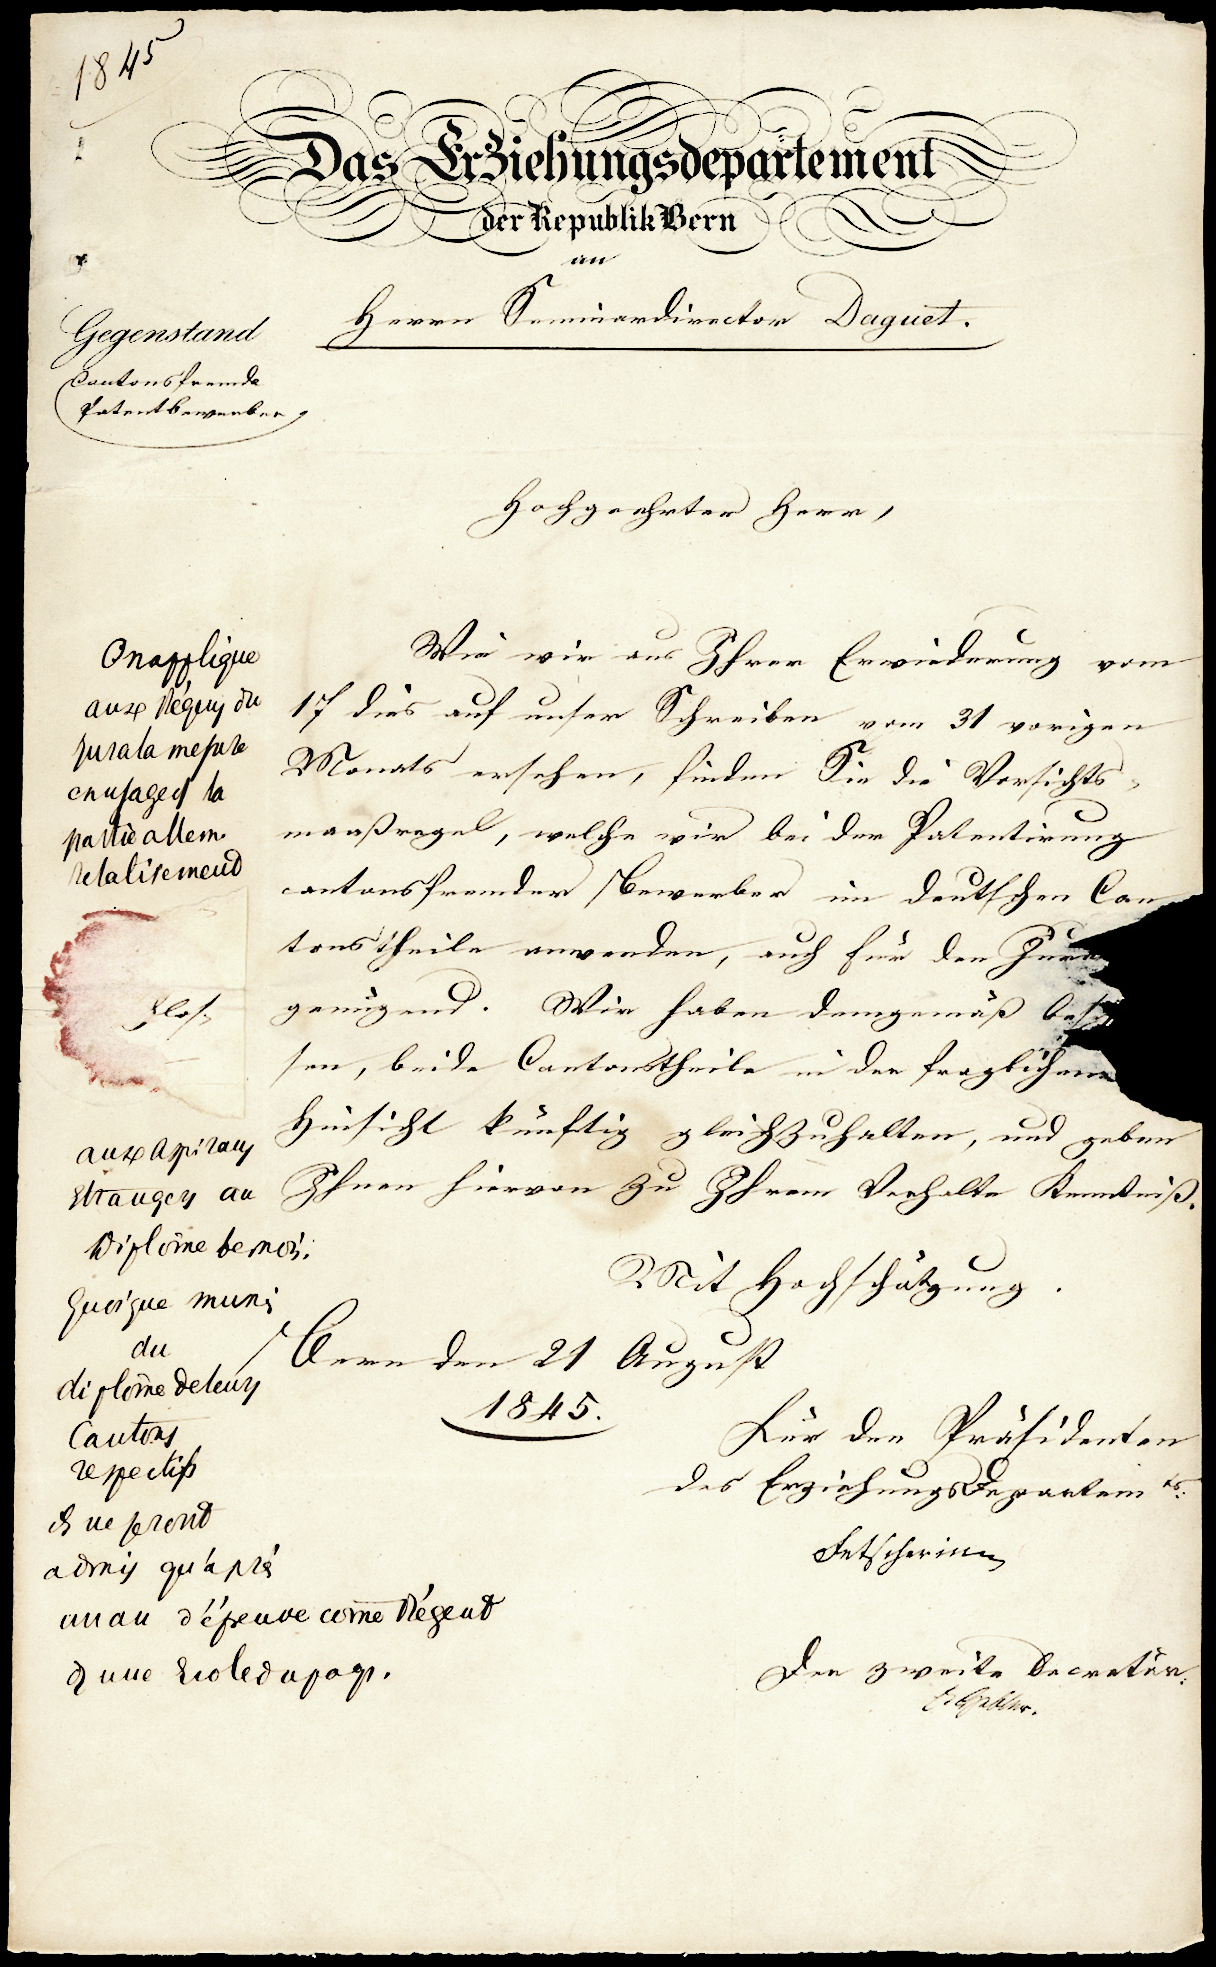 1845
Das Erziehungsdepartement
der Republik Bern
an
Herrn Seminardirector Daguet.
Gegenstand
Cantonsfremde
Patentbewerber,
Hochgeehrter Herr,
Wie wir aus Ihrer Erwiederung vom
17 dies auf unser Schreiben vom 31 vorigen
Monats ersehen, finden Sie die Vorsichts-
maaßregel, welche wir bei der Patentirung
cantonsfremder Bewerber im deutschen Can
tonstheile anwenden, auch für den Jura
genügend. Wir haben demgemäß besch
sen, beide Cantonstheile in der fraglichen
Hinsicht künftig gleichzuhalten, und geben
Ihnen hiervon zu Ihrem Verhalte Kenntniß.
Mit Hochschätzung.
Bern den 21 August
1845.
Für den Präsidenten
des Erziehungsdepartem ts:
Fetscherin
Der zweite Secretär:
On applique
aux Régens du
Jura la mesure
en usage ds la
partie allem.
relativement
aux aspirans
étrangers au
Diplôme bernois.
Quoique munis
du
diplôme de leurs
Cantons
respectifs
ils ne seront
admis qu'après
un an d'épreuve come Régent
d'une Ecole du pays.